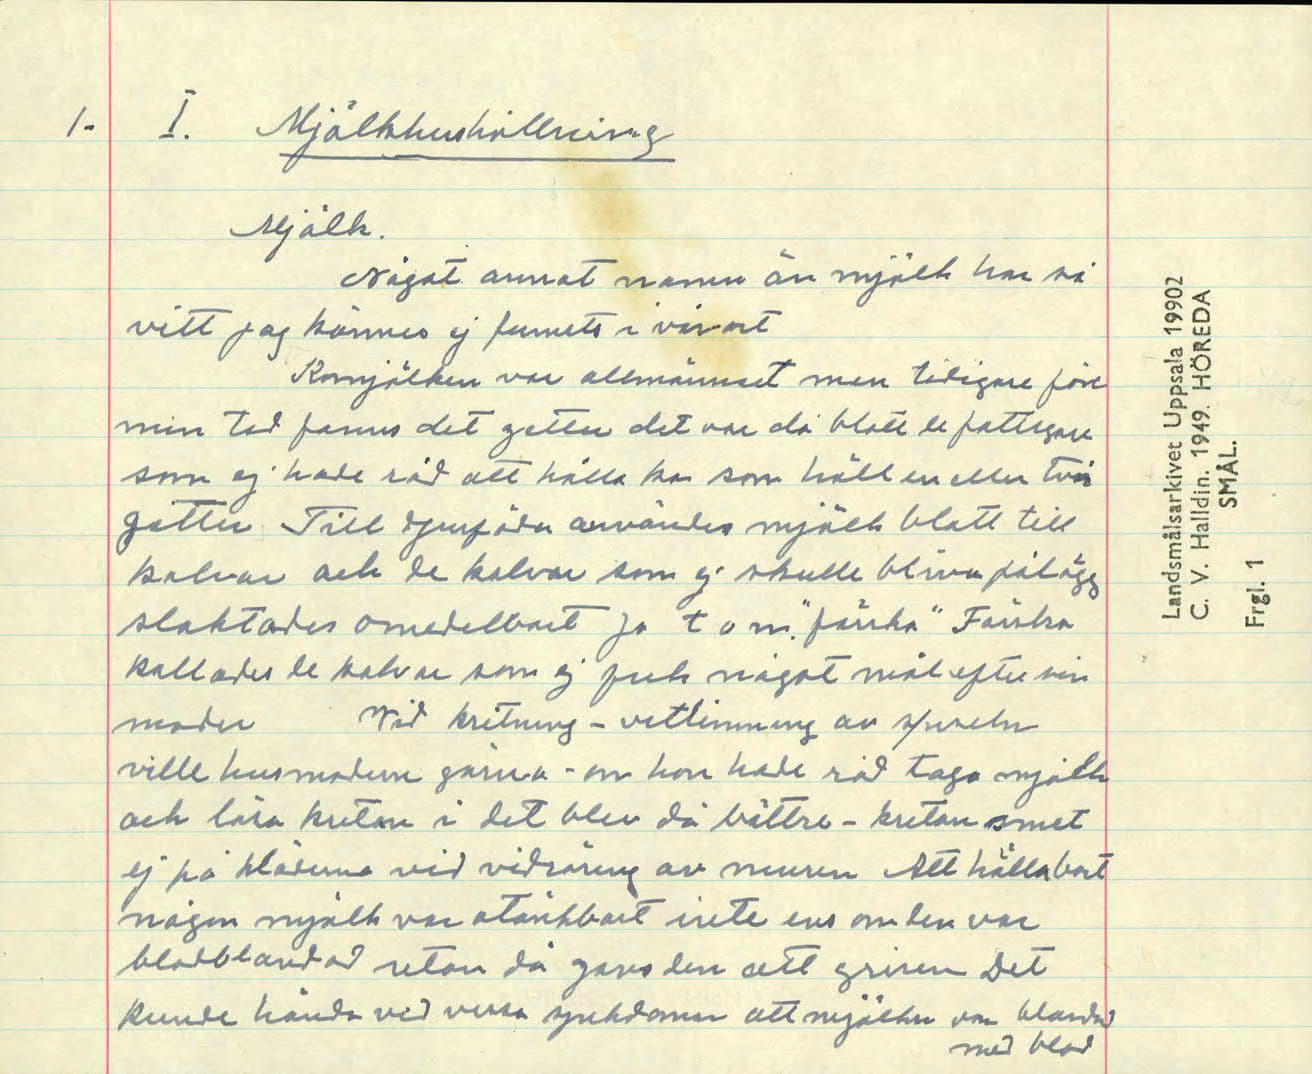 1.
I. Mjölkhushållning
Mjölk.
Något annat namn än mjölk har så
vitt jag kännes ej funnits i vår ort
Komjölken var allmännast men tidigare före
min tid fanns det getter det var då blott de fattigare
som ej hade råd att hålla ko som höll en eller två
getter Till djurföda användes mjölk blott till
kalvar och de kalvar som ej skulle bliva pålägg
slaktades omedelbart Ja t o m. "färska" Färska
kallades de kalvar som ej fick något mål efter sin
moder Vid kritning - vitlimning av spiseln
ville husmodern gärna - om hon hade råd taga mjölk
och lösa kritan i det blev då bättre - kritan smet
ej på kläderna vid vidröring av muren Att hälla bort
någon mjölk var otänkbart inte ens om den var
blodblandad utan då gavs den ått grisen Det
kunde hända vid vissa sjukdomar att mjölken var blandad
med blod
Landsmålsarkivet Uppsala 19902
C. V. Halldin. 1949. HÖREDA
SMÅL.
Frgl. 1